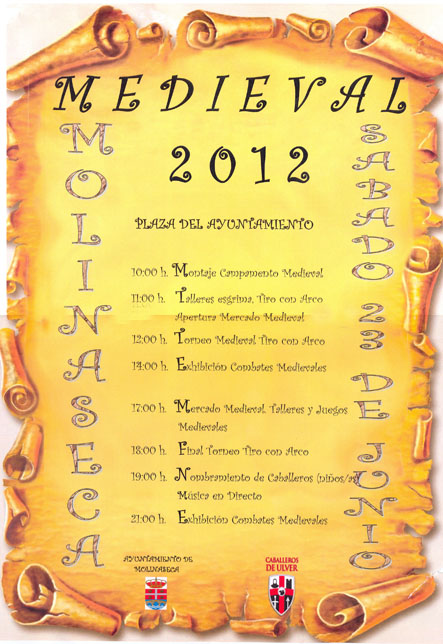 MEDIEVAL
2012
MOLINASECA
SABADO 23 DE JUNIO
PLAZA DEL AYUNTAMIENTO
10:00 h. Montaje Campamento Medieval
11:00 h. Talleres esgrima, Tiro con Arco
Apertura Mercado Medieval
12:00 h. Torneo Medieval Tiro con Arco
14:00 h. Exhibición Combates Medievales
17:00 h. Mercado Medieval, Talleres y Juegos
Medievales
18:00 h. Final Torneo Tiro con Arco
19:00 h. Nombramiento de Caballeros (niños/as)
Música en Directo
21:00 h. Exhibición Combates Medievales
AYUNTAMIENTO DE
MOLINASECA
CABALLEROS
DE ULVER